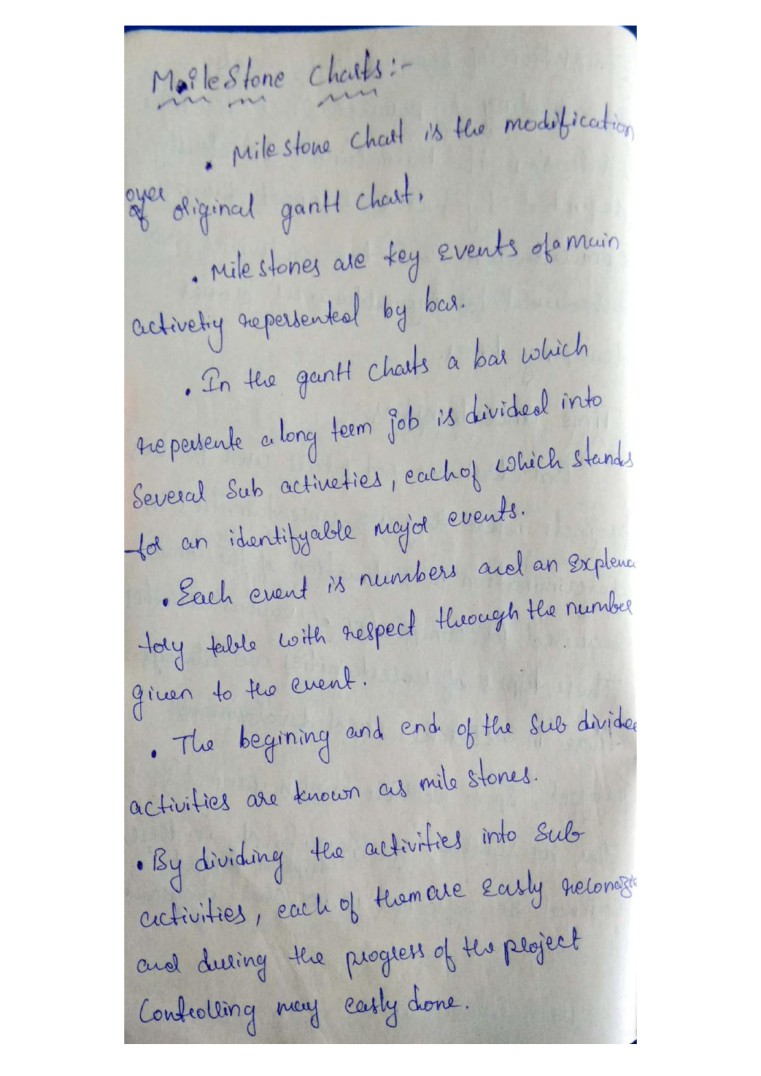 MaileStone Charts:-
• Milestone Chart is the modification
over original gantt chart.
• Milestones are key events of a main
activetiy repersented by bar.
• In the gantt charts a bar which
repersente a long term job is divided into
Several Sub activeties, each of which stands
for an identifyable major events.
• Each event is numbers and an Explena
tory table with respect through the number
given to the event.
• The begining and end of the Sub divided
activities are known as mile stones.
• By dividing the activities into Sub
activities, each of them are Easly
and during the progress of the project
Controlling may easly done.